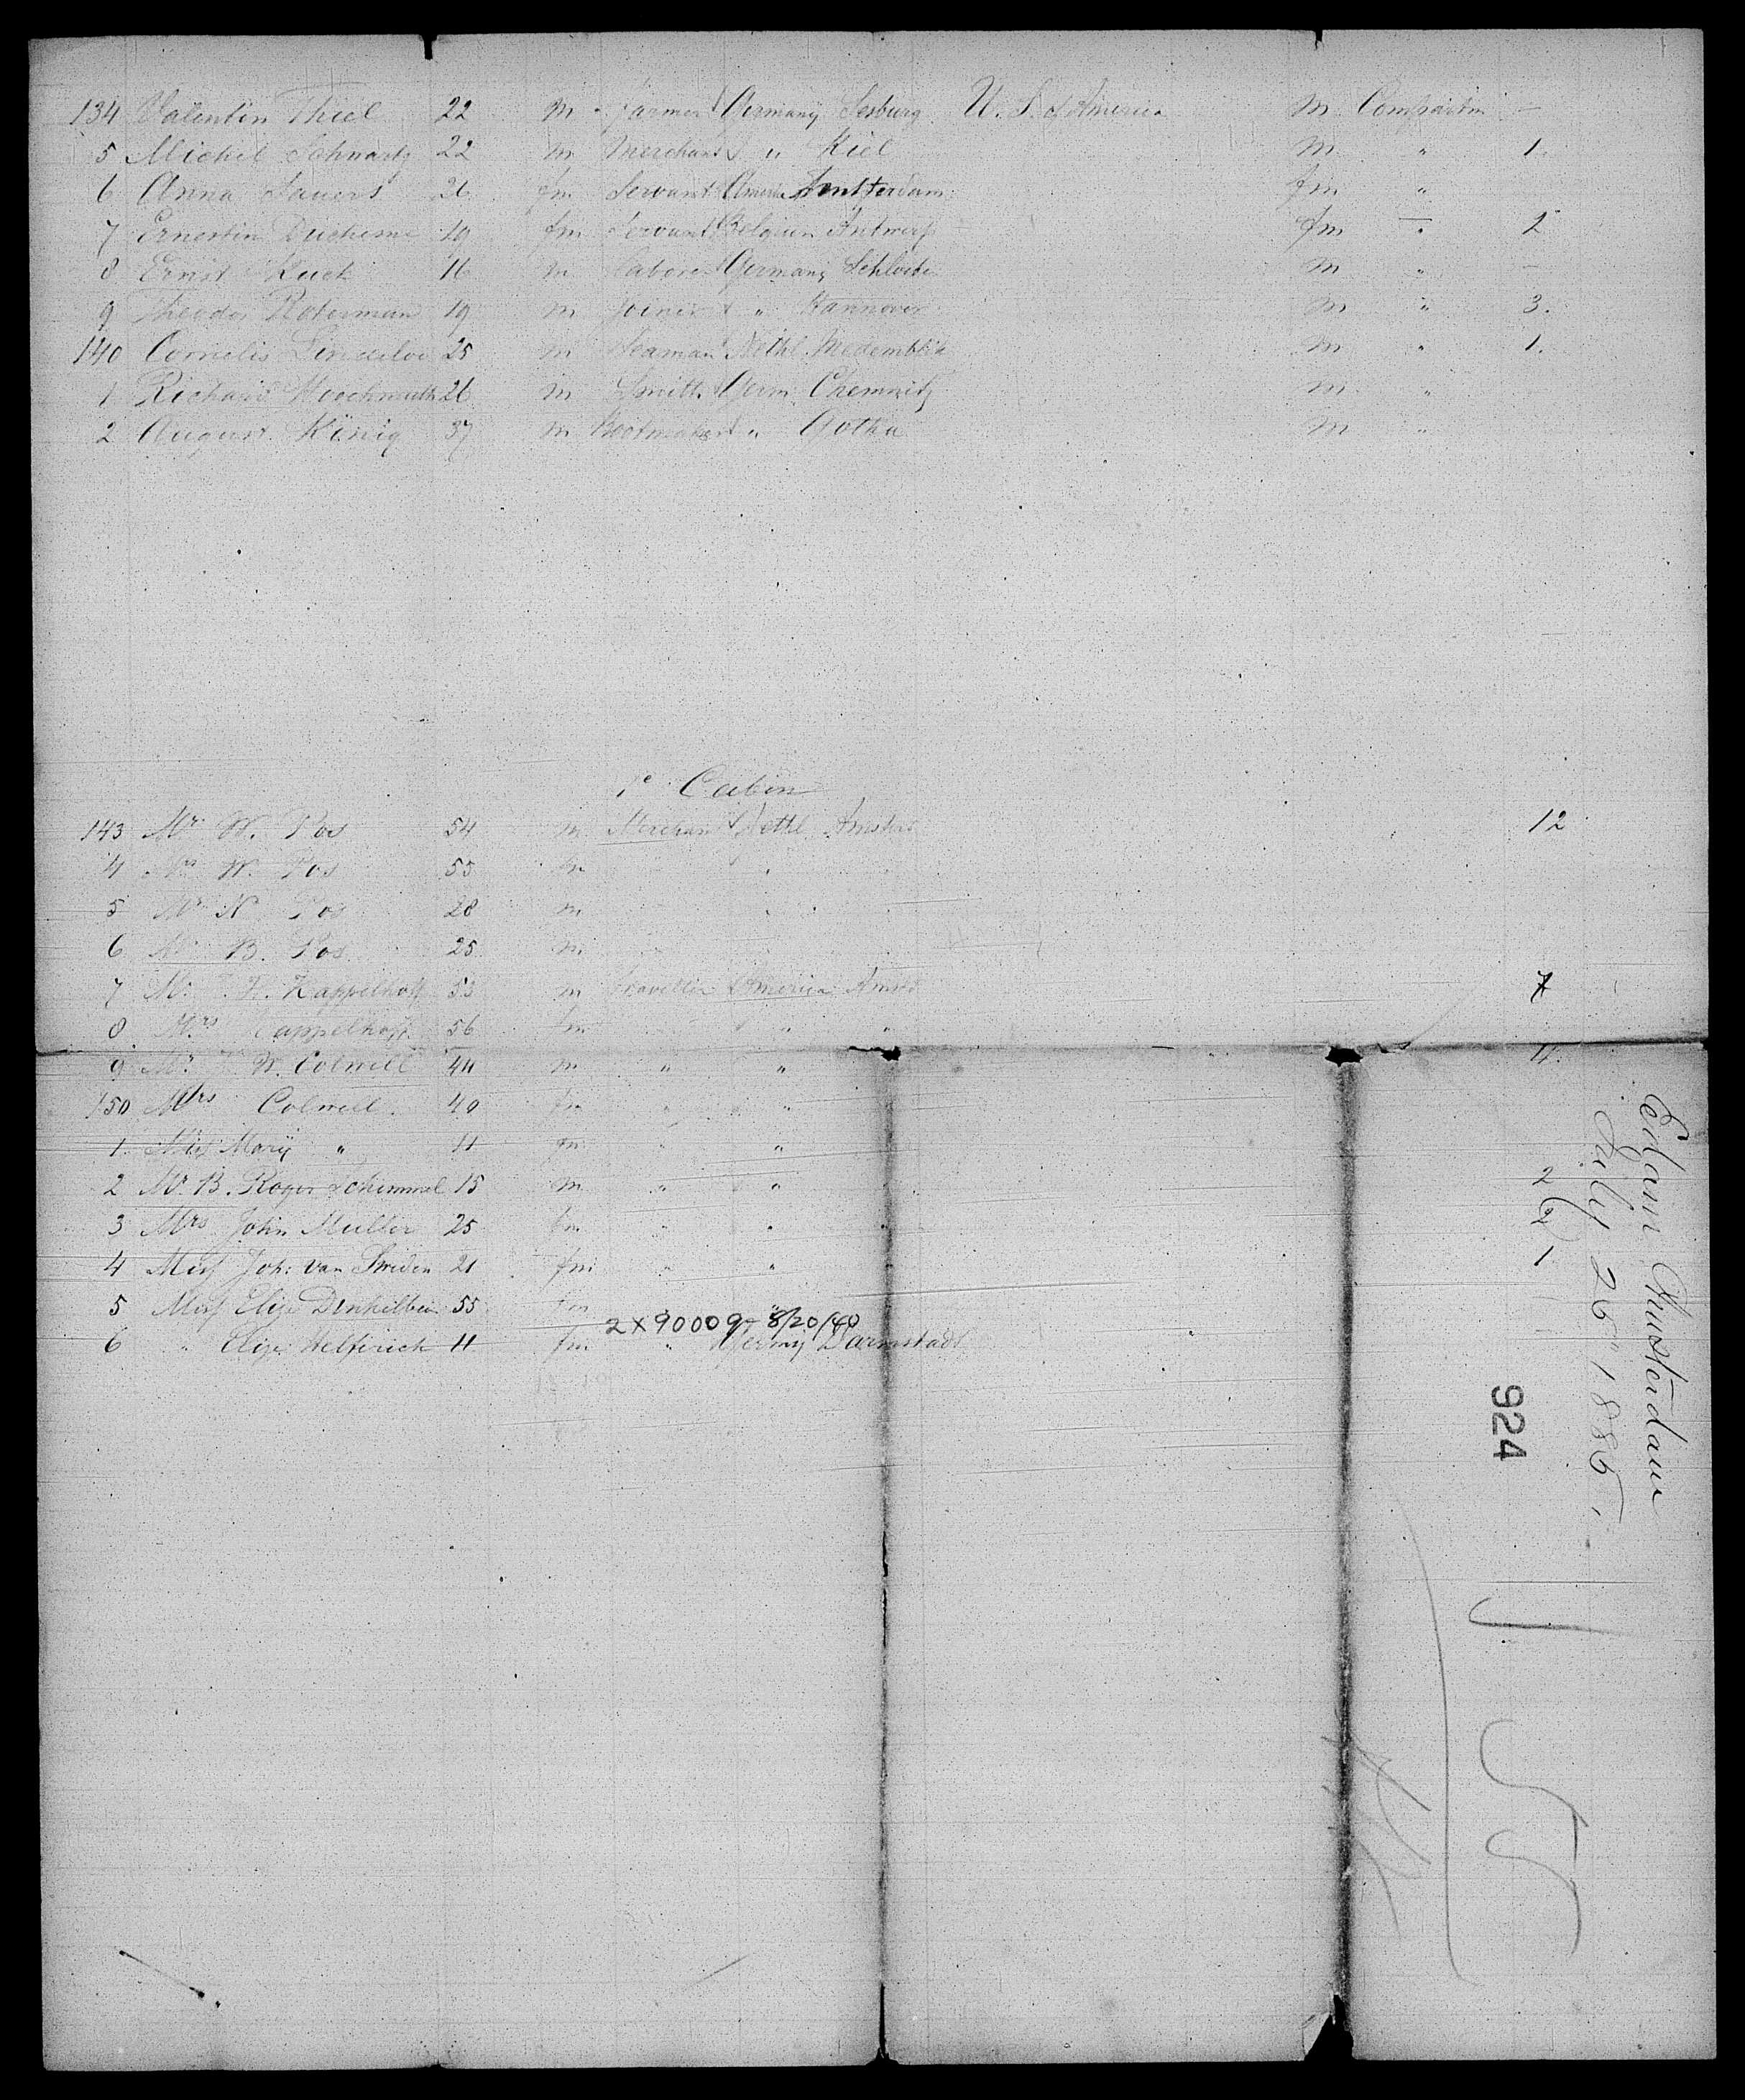 134 Valentin Thiel 22 m Farmer Germany Sesburg U. S. of America m Compartm —
5 Michel Schwartz 22 m Merchant " Kiel m " 1.
6 Anna Sauers 26 fm Servant America Amsterdam fm "
7 Ernestin Duchesne 19 fm Servant Belgium Antwerp fm " 2
8 Ernst Kuck 16 m Labore Germany m " —
9 Theodor Roterman 19 m Joiner " Hannover m " 3.
140 Cornelis 25 m Seaman Nethl. Medemblik m " 1.
1 Richard Hoochmuth 26 m Smith Germ. Chemnitz m "
2 August König 37 m Bootmaker " Gotha m "
1e Cabin
143 Mr W. Pos 54 m Merchant Nethl Amsterd 12
4 Mrs W. Pos 55
5 Mr N Pos 28 m
6 M B. Pos 25 m
7 Mr. Kappelhoff 53 m Traveller America Amstd 7
8 Mrs Kappelhoff 56 fm " "
9 Mr. W. Colwell 44 m " " 4.
150 Mrs Colwell. 40 fm " "
1. Miss Mary " 11 fm " "
2 Mr. B. Roger Schimmel 15 m " " 2
3 Mrs John Muller 25 fm " " 2
4 Miss Joh: van Sweden 21 fm " " 1
5 Miss Elize 55 fm "
2 X 9000 9- 8/20/40
6 " Elize Helferich 11 fm " Germy Darmstadt
Edam Amsterdam
July 26" 1886
924